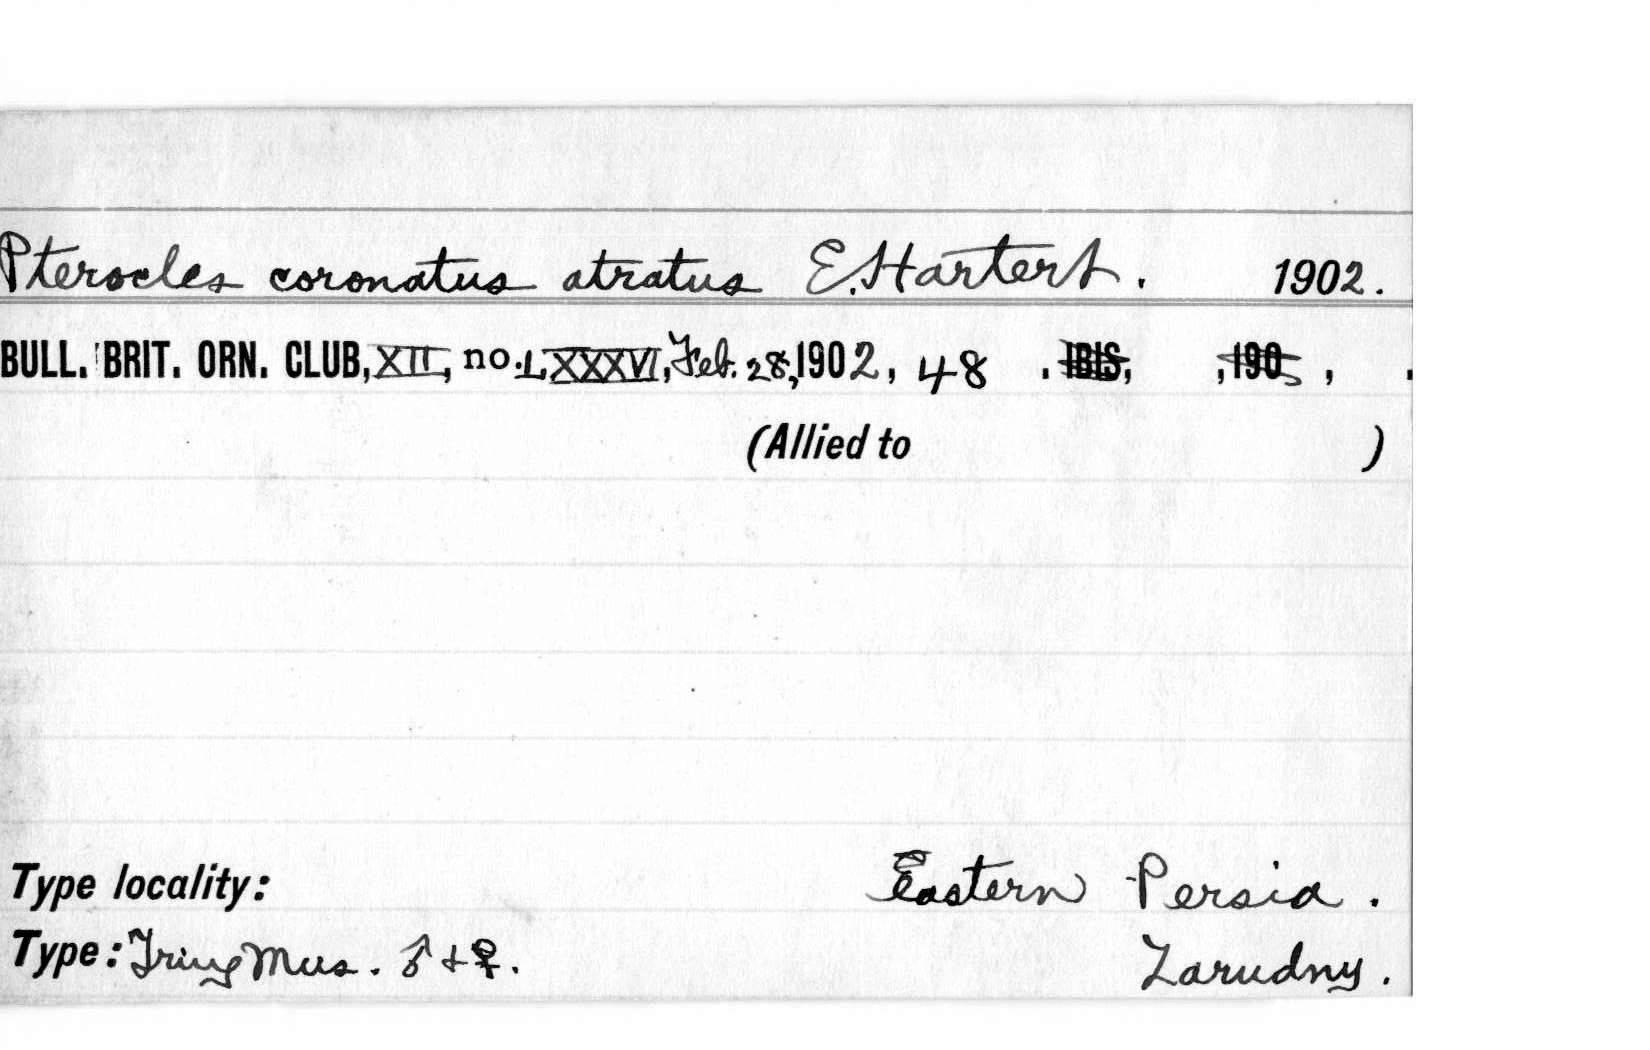 Pterocles coronatus atratus E. Hartert. 1902.
BULL. BRIT. ORN. CLUB, XII, no. LXXXVI, Feb. 28, 1902, 48 . IBIS, , 190 , .
(Allied to )
Type locality: Eastern Persia.
Type: Tring Mus. ♂ + ♀. Zarudny.